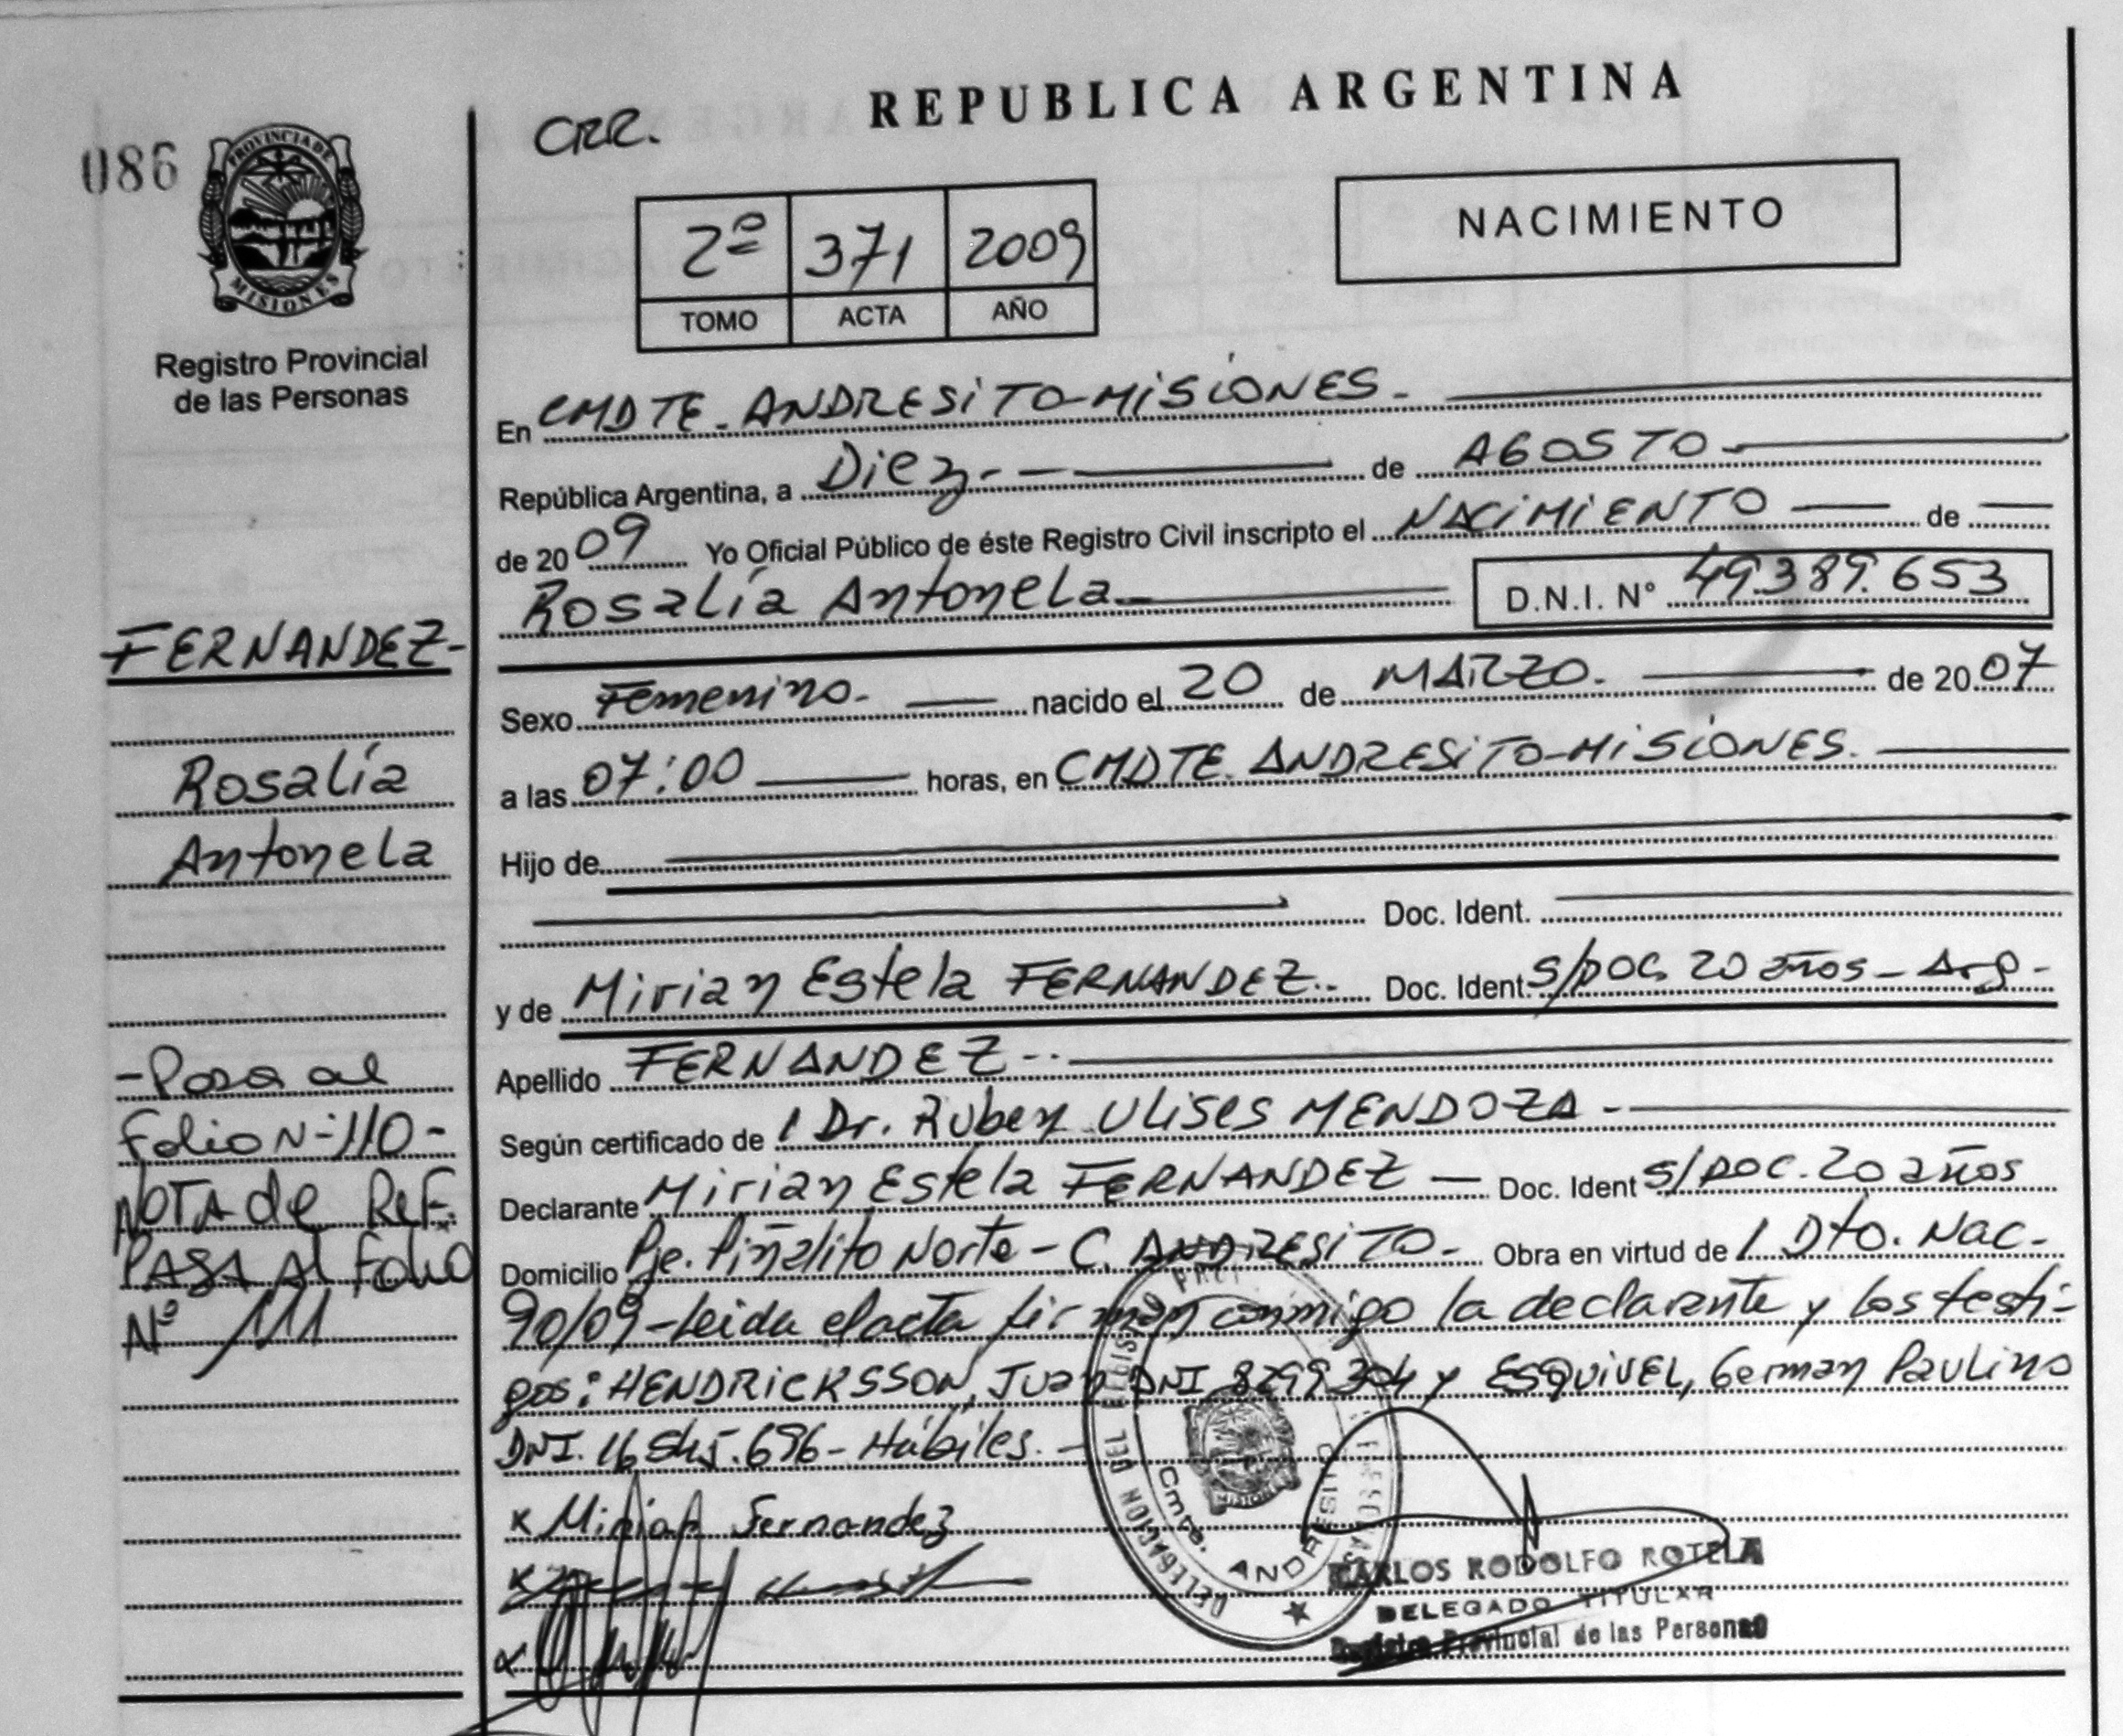 REPUBLICA ARGENTINA
CRR.
086
PROVINCIA DE
MISIONES
Registro Provincial
de las Personas
2º 371 2009
TOMO ACTA AÑO
NACIMIENTO
En CMDTE. ANDRESITO-MISIONES.
República Argentina, a Diez de AGOSTO
de 2009 Yo Oficial Público de éste Registro Civil inscripto el NACIMIENTO de
Rosalía Antonela D.N.I. Nº 49.389.653
FERNANDEZ-
Rosalía
Antonela
-Pasa al
Folio N-110-
NOTA de REF.
PASA Al Folio
Nº 111
Sexo Femenino. nacido el 20 de MARZO. de 2007
a las 07:00 horas, en CMDTE. ANDRESITO-MISIONES.
Hijo de
Doc. Ident.
y de Mirian Estela FERNANDEZ.. Doc. Ident. S/DOC. 20 años - Arg.
Apellido FERNANDEZ
Según certificado de / Dr. Ruben Ulises MENDOZA.
Declarante Mirian Estela FERNANDEZ Doc. Ident S/DOC. 20 años
Domicilio Pje. Piñalito Norte - C. ANDRESITO Obra en virtud de / Dto. Nac.
90/09-Leida el acta firman conmigo la declarante y los testi-
gos: HENDRICKSSON, Juan DNI 8299304 y ESQUIVEL, German Paulino
DNI. 16.545.696- Hábiles.
x Mirian Fernandez
DELEGACION DEL REGISTRO
Cmte. ANDRESITO
MISIONES
CARLOS RODOLFO ROTELA
DELEGADO TITULAR
Registro Provincial de las Personas